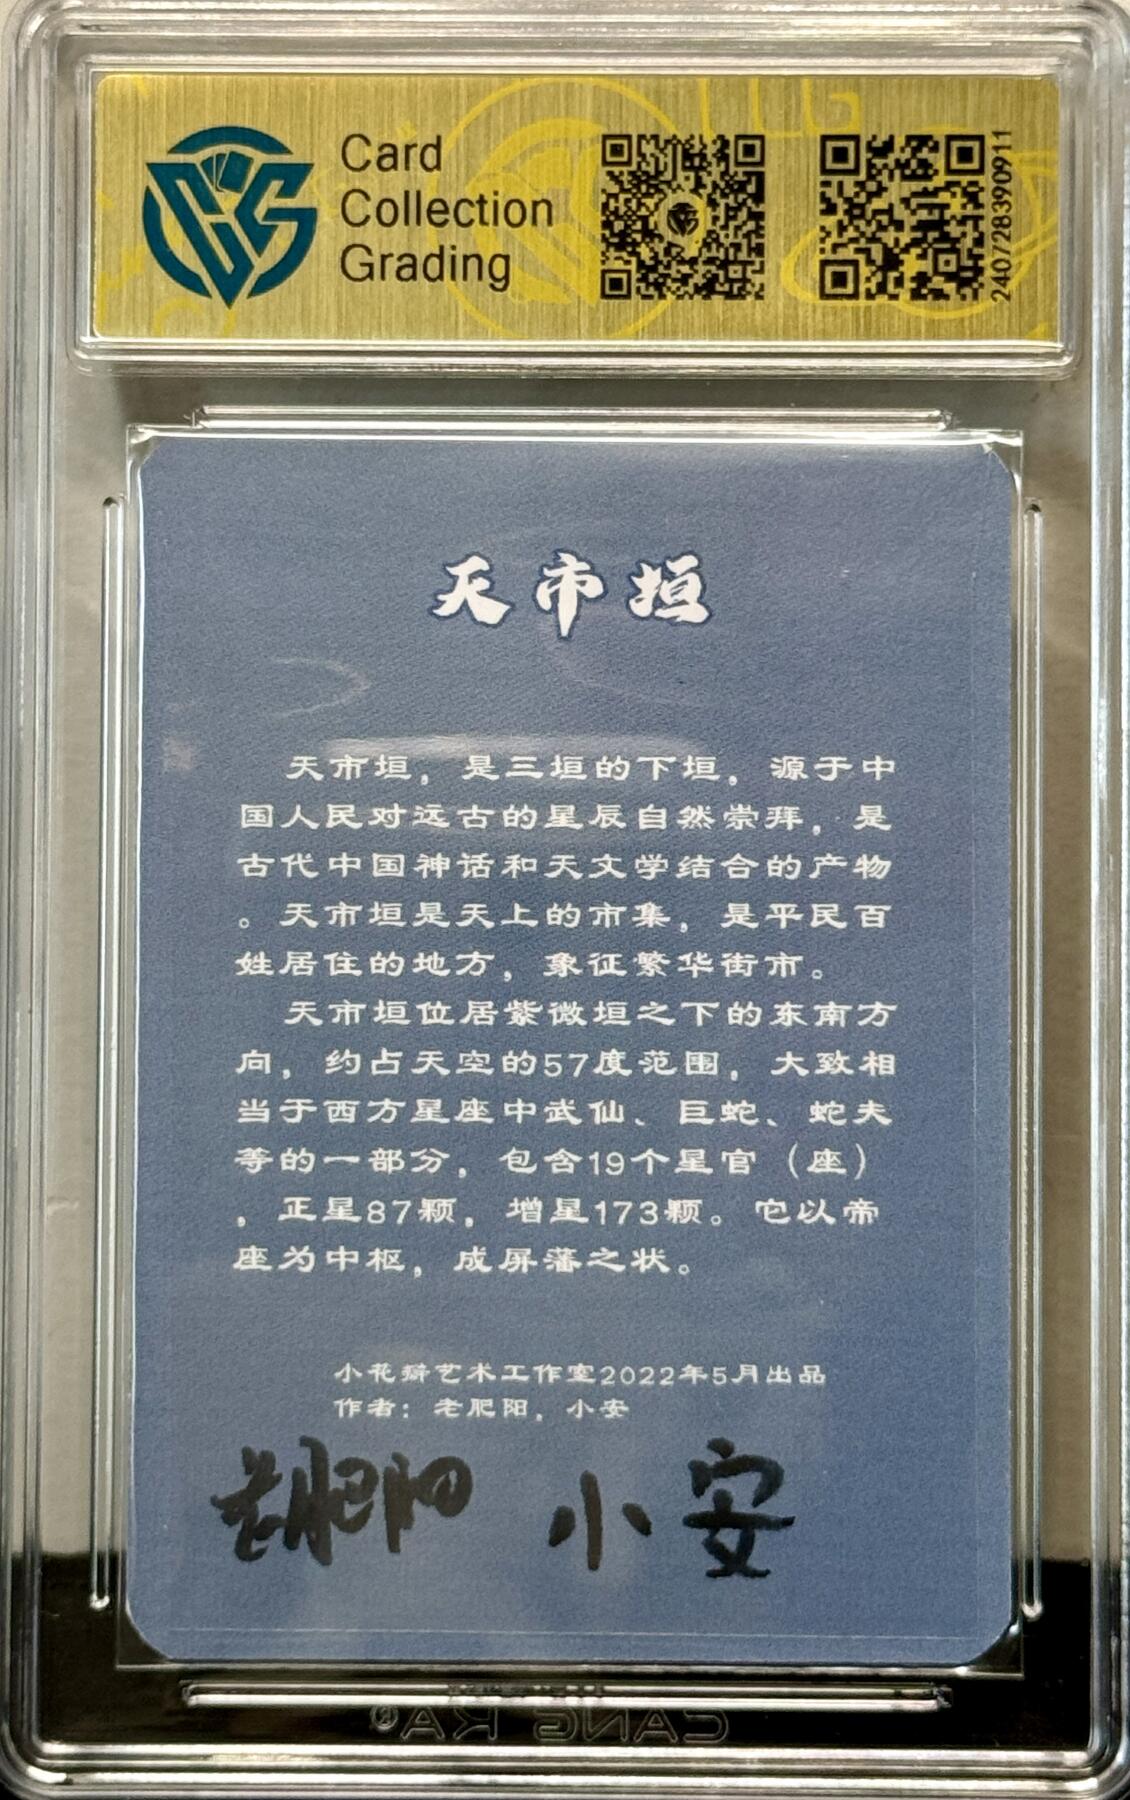 Card
Collection
Grading
2407283909​11
天市垣
天市垣，是三垣的下垣，源于中
国人民对远古的星辰自然崇拜，是
古代中国神话和天文学结合的产物
。天市垣是天上的市集，是平民百
姓居住的地方，象征繁华街市。
天市垣位居紫微垣之下的东南方
向，约占天空的57度范围，大致相
当于西方星座中武仙、巨蛇、蛇夫
等的一部分，包含19个星官（座）
，正星87颗，增星173颗。它以帝
座为中枢，成屏藩之状。
小花瓣艺术工作室2022年5月出品
作者：老肥阳，小安
老肥阳 小安
CANG KA®